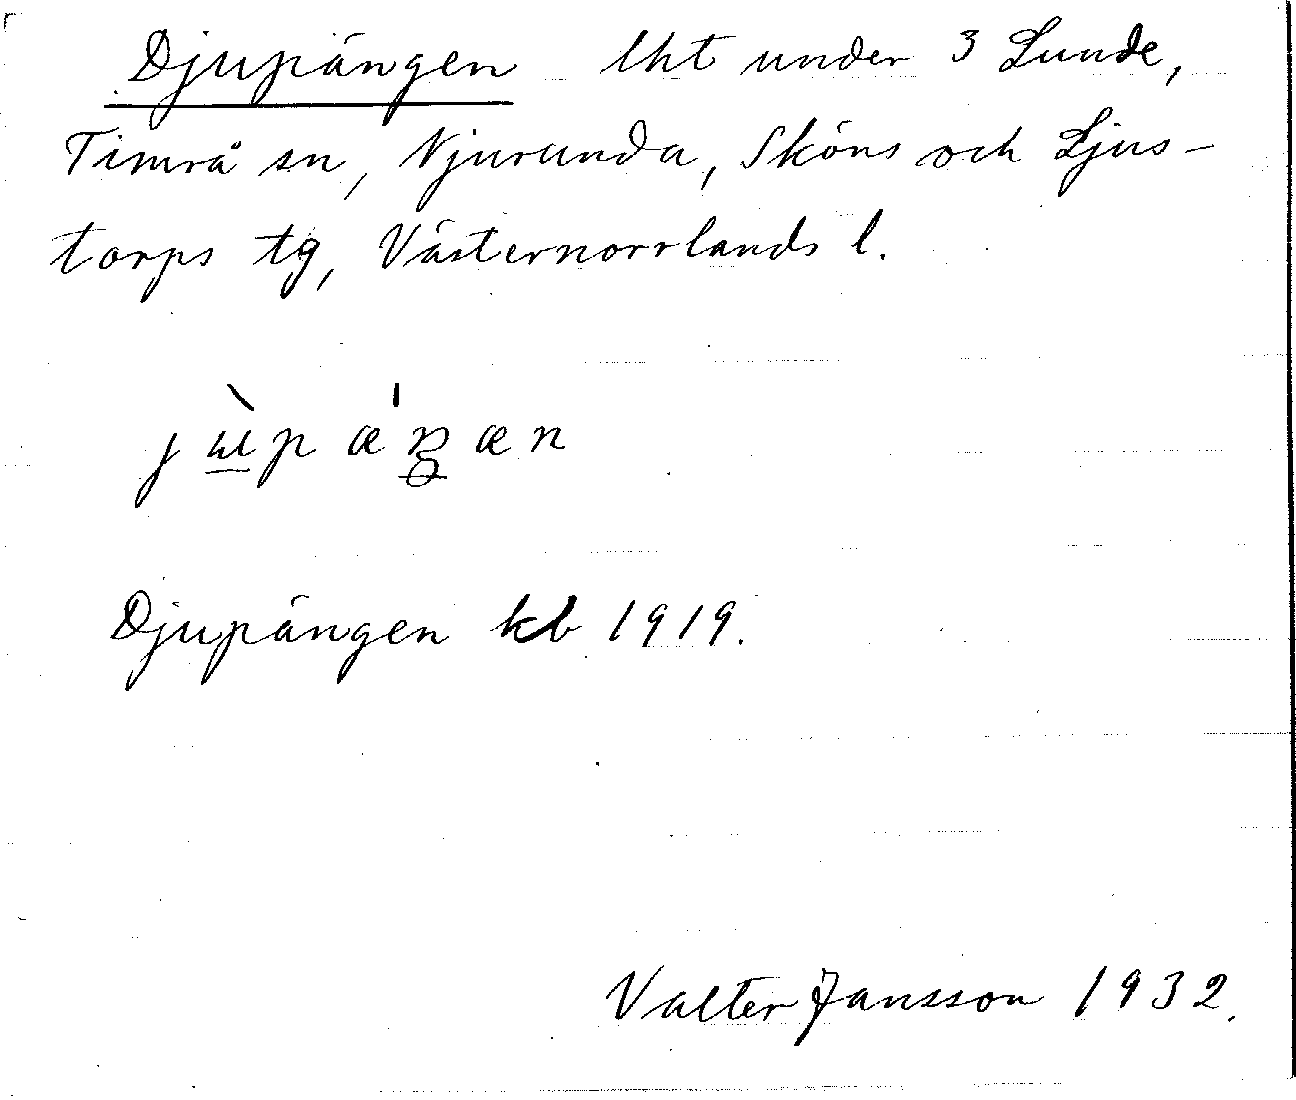 Djupängen lht under 3 Lunde,
Timrå sn, Njurunda, Sköns och Ljus-
torps tg, Västernorrlands l.
jùpæ'ŋæn
Djupängen kb 1919.
Valter Jansson 1932.